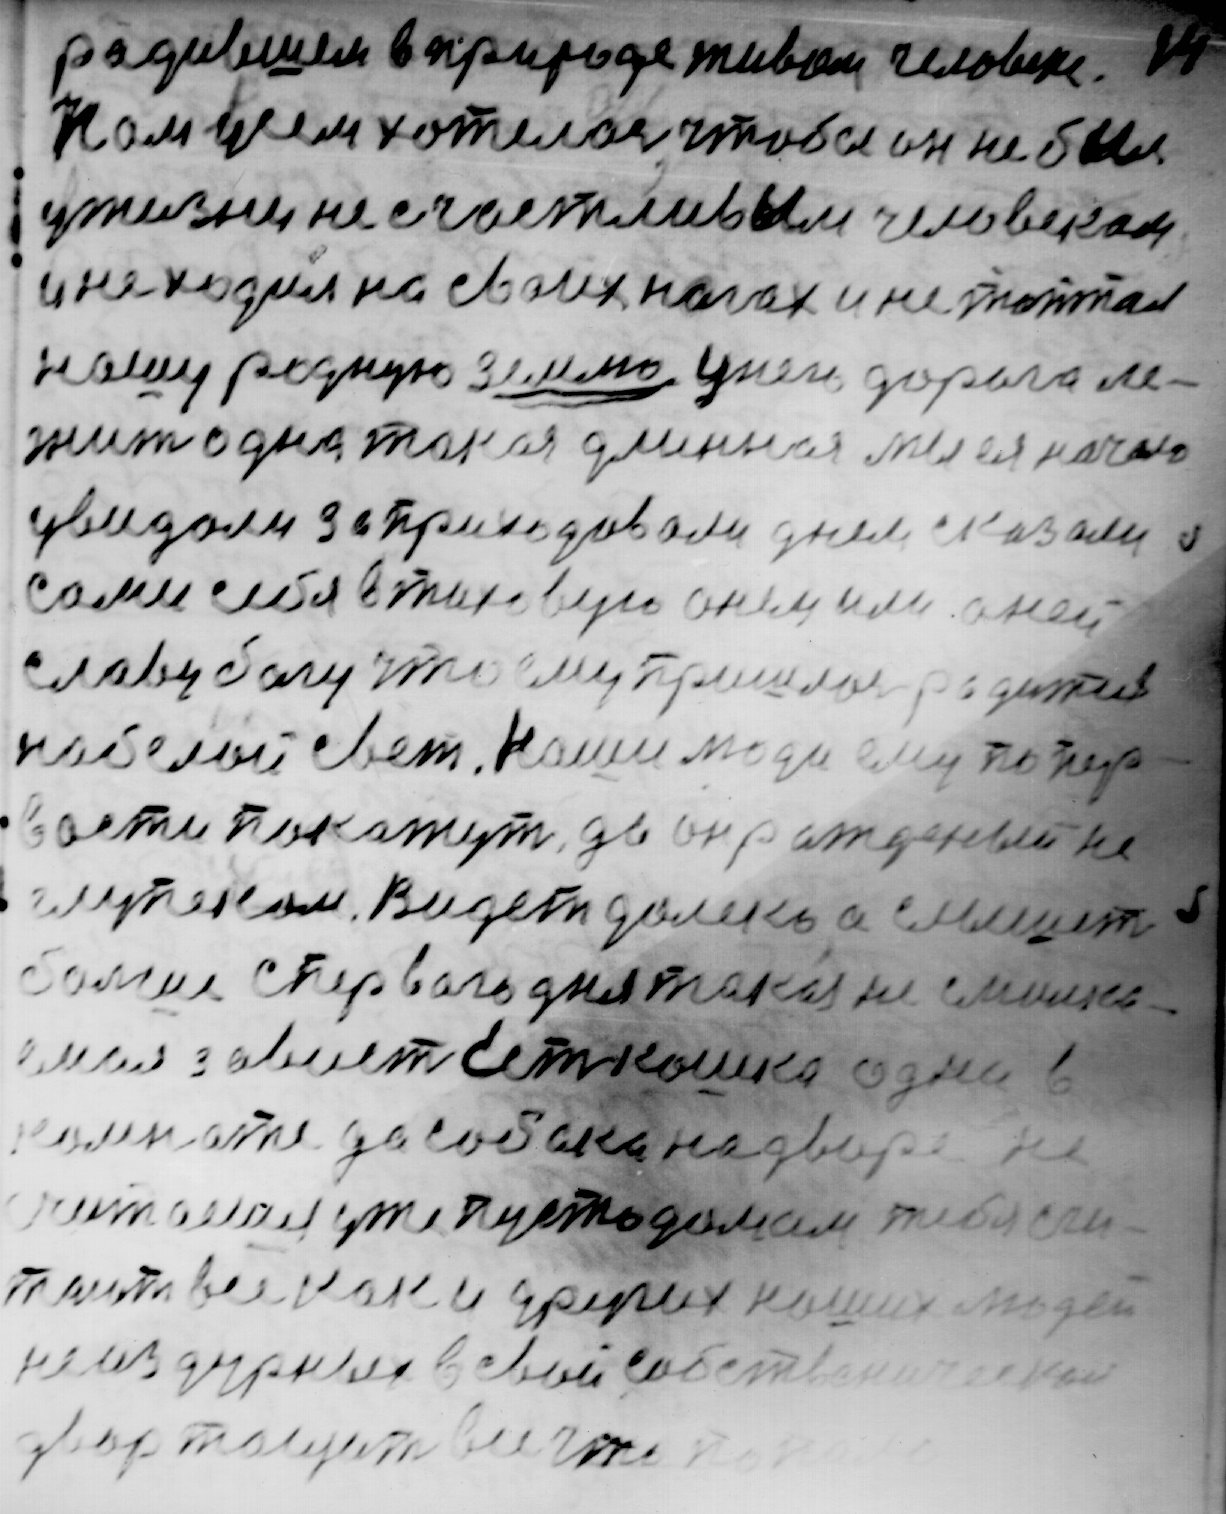 родившем в природе живом человеке. 14
Нам усем хотелося, чтобы он не был
у жизни не счастливым человеком
и не ходил на своих ногах и не топтал
нашу родную землю. У него дорога ле-
жит одна такая длинная мы ея начало
увидали заприходовали днем сказали
сами себя в таковую о нем или о ней
славу богу что ему пришлося родится
на белой свет. Наши люди ему по пер-
вости покажут, да он рожденый не
глупаком. Видеть далеко, а слышет
больше с первого дня такая не
завиет Есть кошка одна в
комнате да собака на дворе не
считошая уже пустодомам тебя счи-
тают все как и других наших людей
не из дурных в свой собственический
двор тащут все что